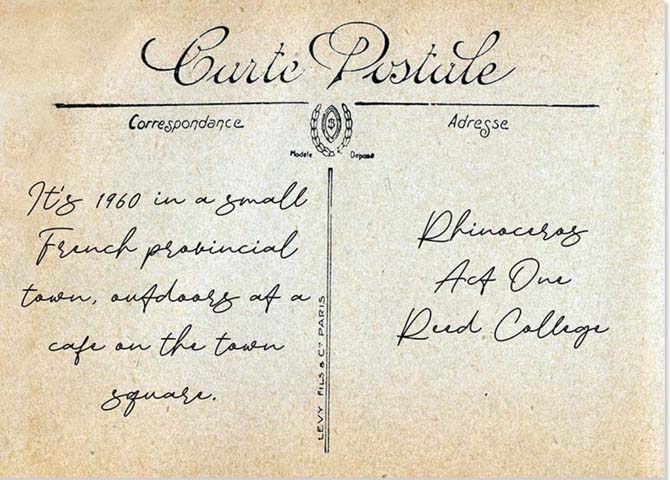 Carte Postale
Correspondance
Adresse
$
Modèle Déposé
It's 1960 in a small
French provincial
town, outdoors at a
cafe on the town
square.
Rhinoceros
Act One
Reed College
LEVY FILS & Cie PARIS